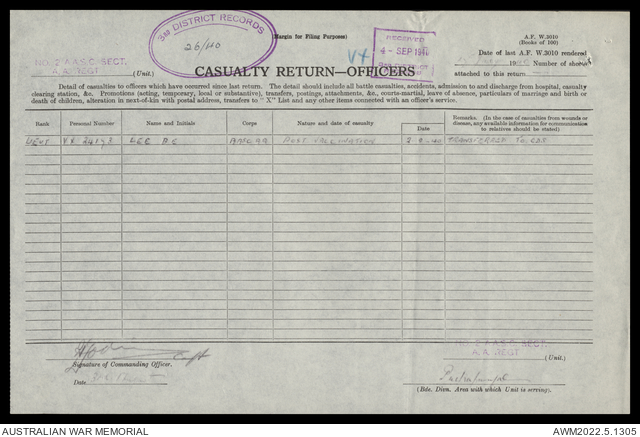 3RD DISTRICT RECORDS
26/40
(Margin for Filing Purposes)
RECEIVED
4 - SEP 1940
A.F. W.3010
(Books of 100)
Date of last A.F. W.3010 rendered
NO. 2 A.A.S.C. SECT.
A. A. REGT
(Unit.)
CASUALTY RETURN—OFFICERS
Number of sheets
attached to this return
Detail of casualties to officers which have occurred since last return. The detail should include all battle casualties, accidents, admission to and discharge from hospital, casualty
clearing station, &c. Promotions (acting, temporary, local or substantive), transfers, postings, attachments, &c., courts-martial, leave of absence, particulars of marriage and birth or
death of children, alteration in next-of-kin with postal address, transfers to "X" List and any other items connected with an officer's service.
Rank
Personal Number
Name and Initials
Corps
Nature and date of casualty
Date
Remarks. (In the case of casualties from wounds or
disease, any available information for communication
to relatives should be stated)
LIEUT
LEE
POST VACCINATION
TRANSFERRED TO
Capt
Signature of Commanding Officer.
Date
NO. 2 A.A.S.C. SECT.
A. A. REGT
(Unit.)
Puckapunyal
(Bde. Divn. Area with which Unit is serving).
AUSTRALIAN WAR MEMORIAL
AWM2022.5.1305